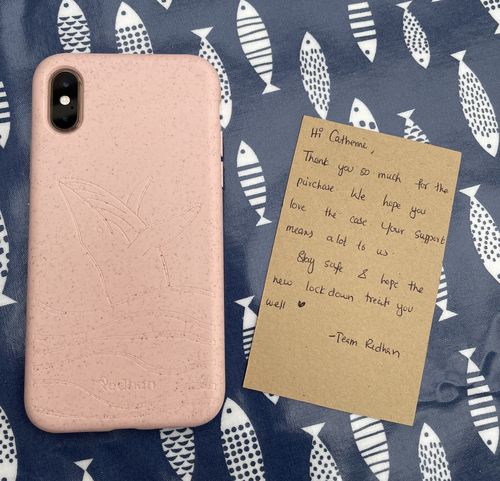 Redhan
Hi Catherine,
Thank you so much for the
purchase We hope you
love the case Your support
means a lot to us.
Stay safe & hope the
new lockdown treats you
well ♥
-Team Redhan